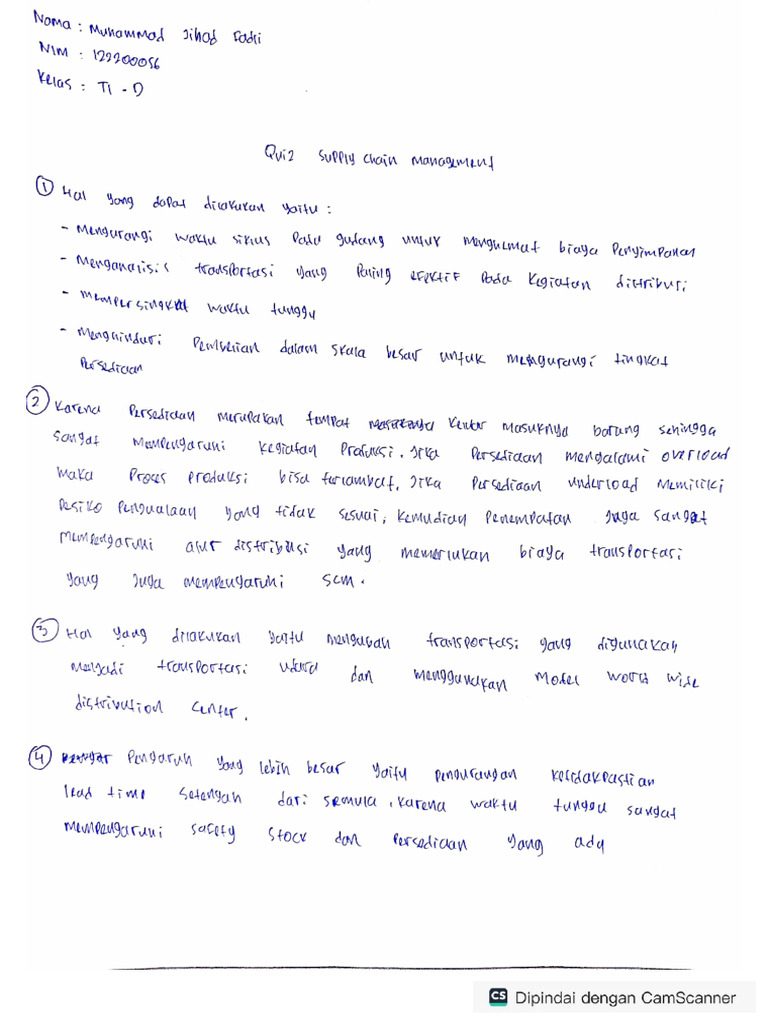 Nama : Muhammad Jihad Fadli
NIM : 122200056
Kelas : TI - D
Quiz Supply Chain Management
① Hal yang dapat dilakukan yaitu :
- Mengurangi waktu siklus pada gudang untuk menghemat biaya penyimpanan
- Menganalisis transportasi yang paling efektif pada kegiatan distribusi
- Mempersingkat waktu tunggu
- Menghindari Pembelian dalam skala besar untuk mengurangi tingkat
persediaan
② Karena Persediaan merupakan tempat keluar masuknya barang sehingga
sangat mempengaruhi kegiatan Produksi. Jika Persediaan mengalami overload
maka Proses produksi bisa terlambat. Jika Persediaan underload memiliki
resiko pengualaan yang tidak sesuai, kemudian penempatan juga sangat
mempengaruhi alur distribusi yang memerlukan biaya transportasi
yang juga mempengaruhi SCM.
③ Hal yang dilakukan yaitu mengubah transportasi yang digunakan
menjadi transportasi udara dan menggunakan model world wide
distribution center.
④ Pengaruh yang lebih besar yaitu pengurangan ketidakpastian
lead time setengah dari semula, karena waktu tunggu sangat
mempengaruhi safety stock dan Persediaan yang ada
CS Dipindai dengan CamScanner